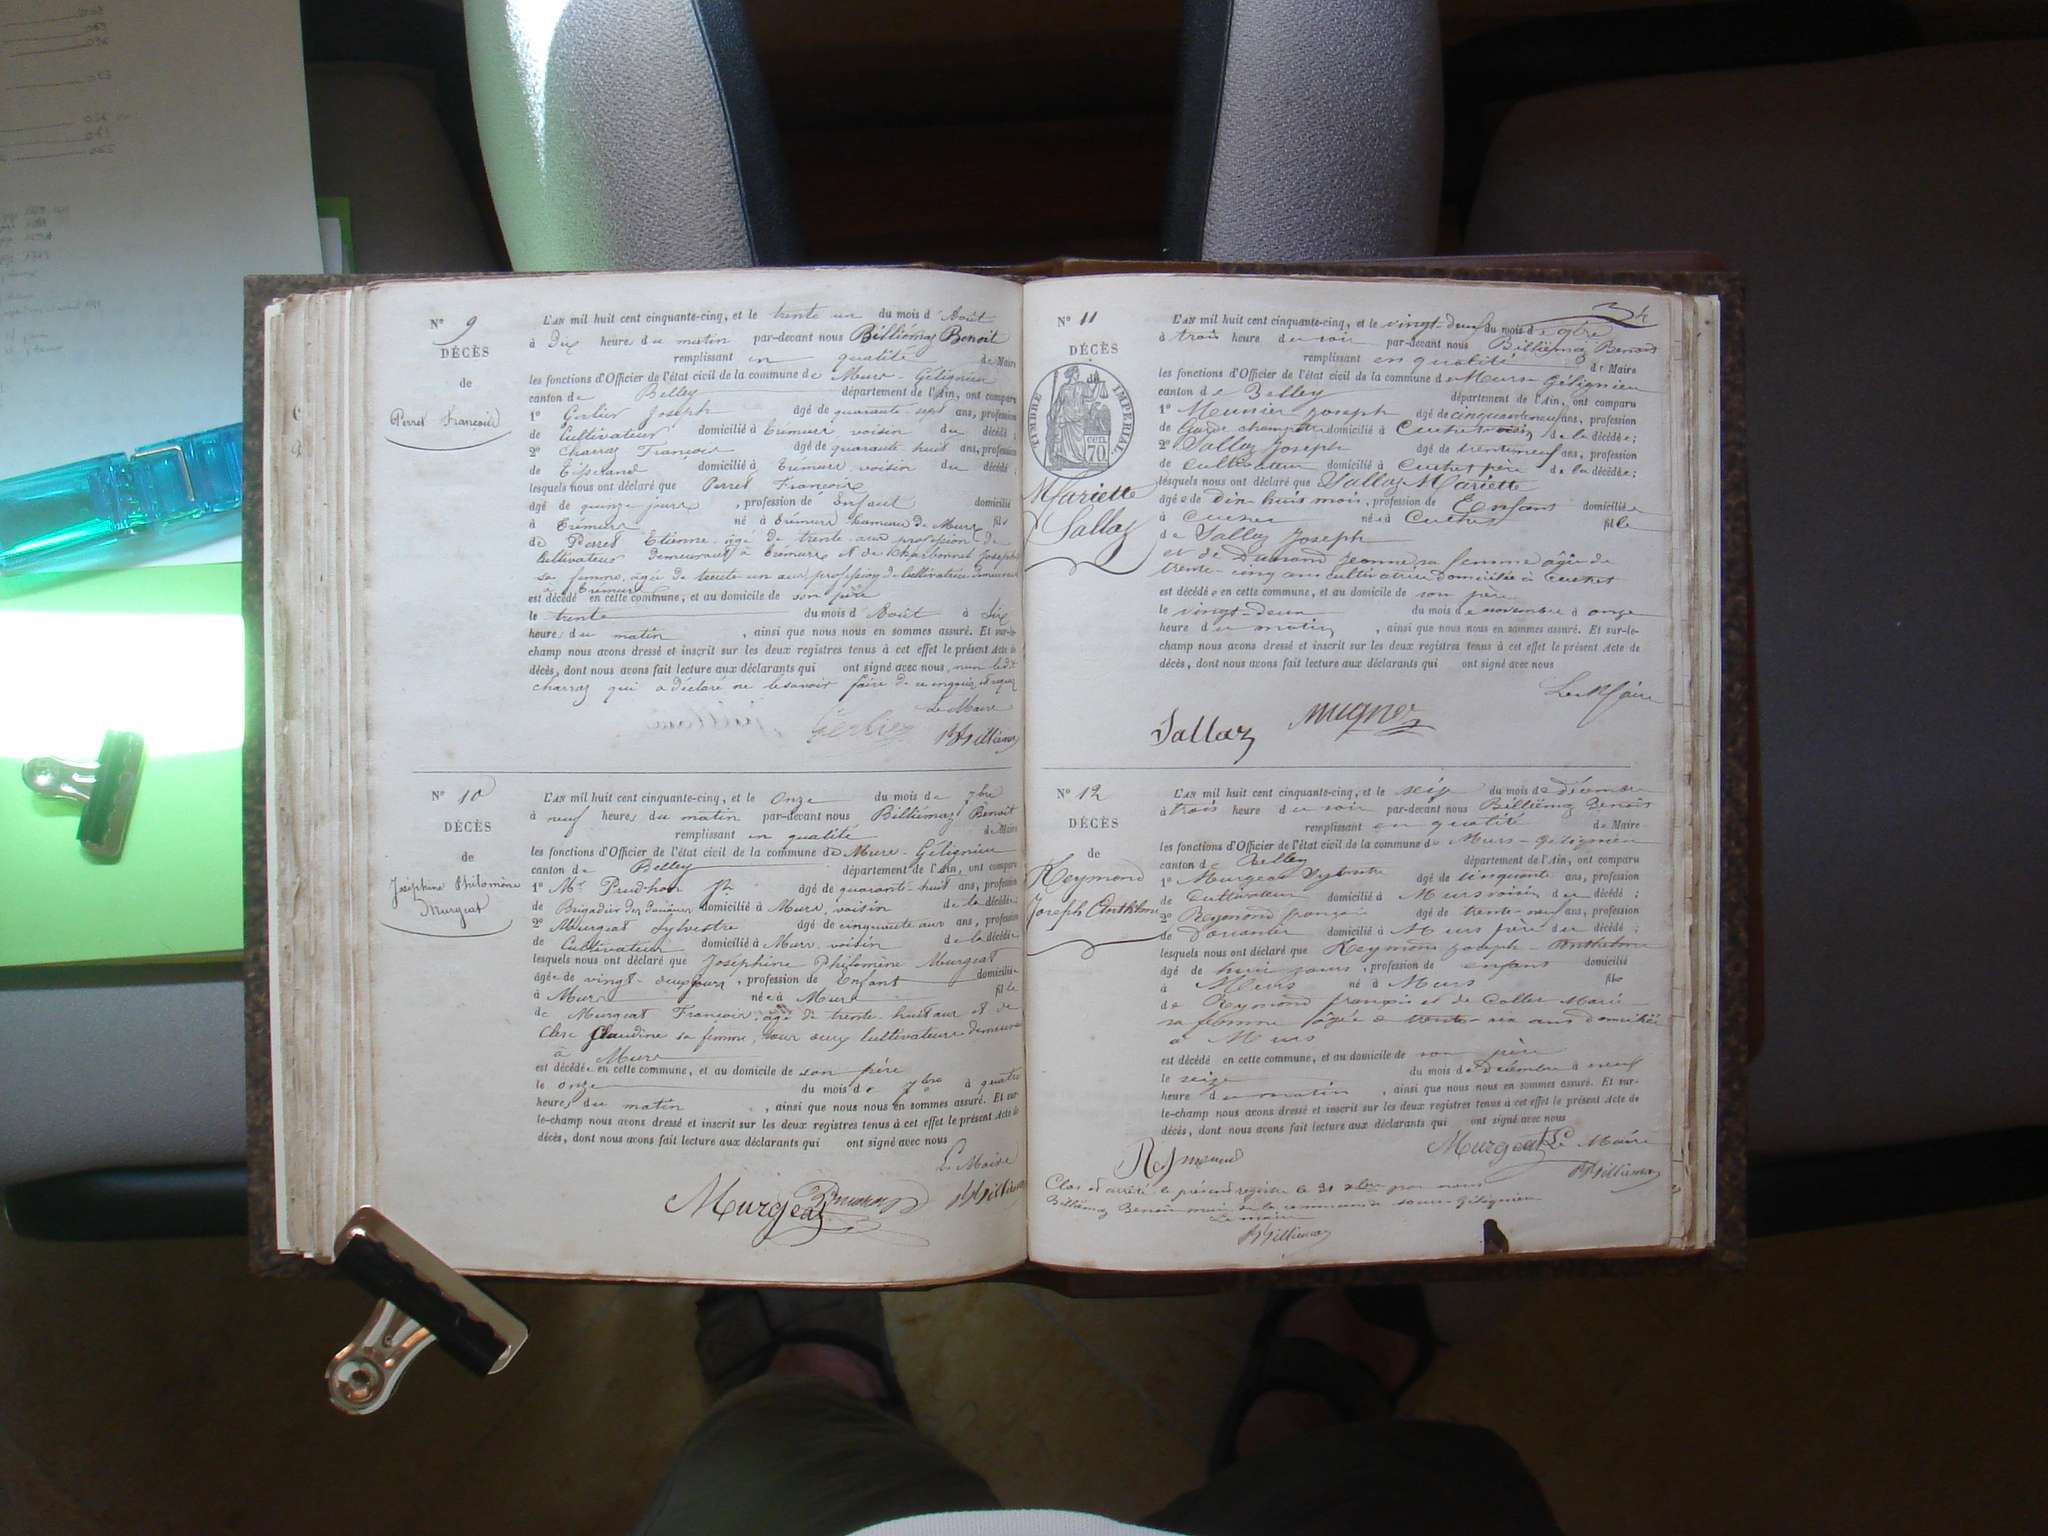 N° 9
DÉCÈS
de
Perret François
L'AN mil huit cent cinquante-cinq, et le trente un du mois d'Août
à Dix heures du matin par-devant nous Billiémaz Benoit
remplissant en qualité de Maire
les fonctions d'Officier de l'état civil de la commune de Murs-Gélignieu
canton de Belley département de l'Ain, ont comparu
1° Gerlier Joseph âgé de quarante-sept ans, profession
de Cultivateur domicilié à Crémure voisin du décédé;
2° Charraz François âgé de quarante huit ans, profession
de Tisserand domicilié à Crémure, voisin du décédé;
lesquels nous ont déclaré que Perret François
âgé de quinze jours, profession de Enfant domicilié
à Crémure né à Crémure hameau de Murs fils
de Perret Etienne âgé de trente aus profession de
Cultivateur demeurant à Crémure et de Charbonnet Josephte
sa femme, âgée de trente un ans, profession de Cultivatrice demeurant
à Crémure
est décédé en cette commune, et au domicile de son père
le trente du mois d'Août à Six
heures du matin, ainsi que nous nous en sommes assuré. Et sur-le-
champ nous avons dressé et inscrit sur les deux registres tenus à cet effet le présent Acte de
décès, dont nous avons fait lecture aux déclarants qui ont signé avec nous, non ledit
Charraz qui a déclaré ne le savoir faire de ce enquis et requis
Le Maire
Gerlier BBilliémaz
N° 10
DÉCÈS
de
Joséphine Philomène
Murgeat
L'AN mil huit cent cinquante-cinq, et le Onze du mois de 7bre
à neuf heures du matin par-devant nous Billiémaz Benoît
remplissant en qualité de Maire
les fonctions d'Officier de l'état civil de la commune de Murs-Gélignieu
canton de Belley département de l'Ain, ont comparu
1° Mr Prudhon âgé de quarante-huit ans, profession
de Brigadier des douanes domicilié à Murs, voisin de la décédée;
2° Murgeat Sylvestre âgé de cinquante ans, profession
de Cultivateur domicilié à Murs, voisin de la décédée
lesquels nous ont déclaré que Joséphine Philomène Murgeat
âgée de vingt-deux jours, profession de Enfant domiciliée
à Murs née à Murs fille
de Murgeat François, âgé de trente-huit ans et de
Clerc Claudine sa femme, tous deux Cultivateurs demeurant
à Murs
est décédée en cette commune, et au domicile de son père
le onze du mois de 7bre à quatre
heures du matin, ainsi que nous nous en sommes assuré. Et sur-
le-champ nous avons dressé et inscrit sur les deux registres tenus à cet effet le présent Acte de
décès, dont nous avons fait lecture aux déclarants qui ont signé avec nous
Le Maire
Murgeat BBilliémaz
34
N° 11
DÉCÈS
de
TIMBRE IMPÉRIAL
cen. 70
Mariette
Sallaz
L'AN mil huit cent cinquante-cinq, et le vingt-deux du mois de 9bre
à trois heure du soir par-devant nous Billiémaz Benoit
remplissant en qualité de Maire
les fonctions d'Officier de l'état civil de la commune de Murs Gélignieu
canton de Belley département de l'Ain, ont comparu
1° Meunier Joseph âgé de cinquanteneuf ans, profession
de Garde champêtre domicilié à Cuchet voisin de la décédée;
2° Sallaz Joseph âgé de trenteneuf ans, profession
de Cultivateur domicilié à Cuchet père de la décédée;
lesquels nous ont déclaré que Sallaz Mariette
âgée de dix-huit mois, profession de Enfant domiciliée
à Cuchet née à Cuchet fille
de Sallaz Joseph
et de Durand Jeanne sa femme âgée de
trente-cinq ans cultivatrice domiciliée à Cuchet
est décédée en cette commune, et au domicile de son père
le vingt-deux du mois de novembre à onze
heure du matin, ainsi que nous nous en sommes assuré. Et sur-le-
champ nous avons dressé et inscrit sur les deux registres tenus à cet effet le présent Acte de
décès, dont nous avons fait lecture aux déclarants qui ont signé avec nous
Le Maire
Sallaz
N° 12
DÉCÈS
de
Reymond
Joseph Anthelme
L'AN mil huit cent cinquante-cinq, et le seize du mois de décembre
à trois heure du soir par-devant nous Billiémaz Benoit
remplissant en qualité de Maire
les fonctions d'Officier de l'état civil de la commune de Murs-Gélignieu
canton de Belley département de l'Ain, ont comparu
1° Murgeat Sylvestre âgé de cinquante ans, profession
de Cultivateur domicilié à Murs voisin du décédé;
2° Reymond françois âgé de trente-neuf ans, profession
de Douanier domicilié à Murs père du décédé;
lesquels nous ont déclaré que Reymond Joseph-Anthelme
âgé de huit jours, profession de enfant domicilié
à Murs né à Murs fils
de Reymond françois et de Collet Marie
sa femme âgée de trente-six ans domiciliée
à Murs
est décédé en cette commune, et au domicile de son père
le seize du mois de Décembre à neuf
heure du matin, ainsi que nous nous en sommes assuré. Et sur-
le-champ nous avons dressé et inscrit sur les deux registres tenus à cet effet le présent Acte de
décès, dont nous avons fait lecture aux déclarants qui ont signé avec nous
Murgeat Le Maire
Reymond BBilliémaz
Clos et arrêté le présent registre le 31 xbre par nous
Billiémaz Benoit maire de la commune de Murs-Gélignieu
Le maire
BBilliémaz